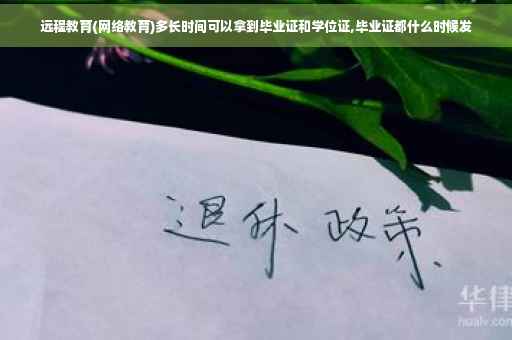 远程教育(网络教育)多长时间可以拿到毕业证和学位证,毕业证都什么时候发
退休 政策
华律
hualv.com